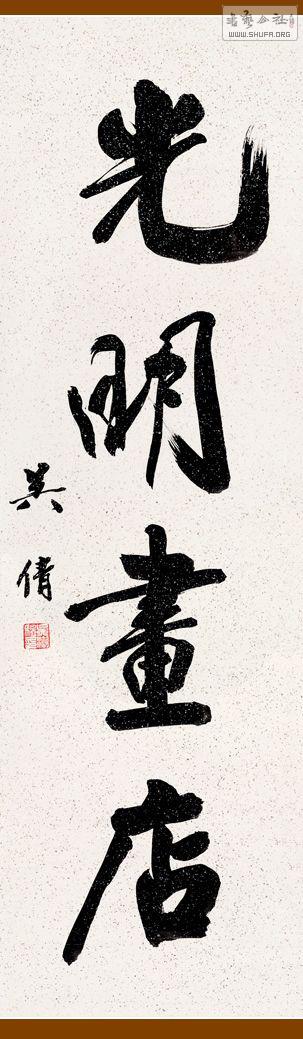 書藝公社
WWW.SHUFA.ORG
光明畫店
吳倩